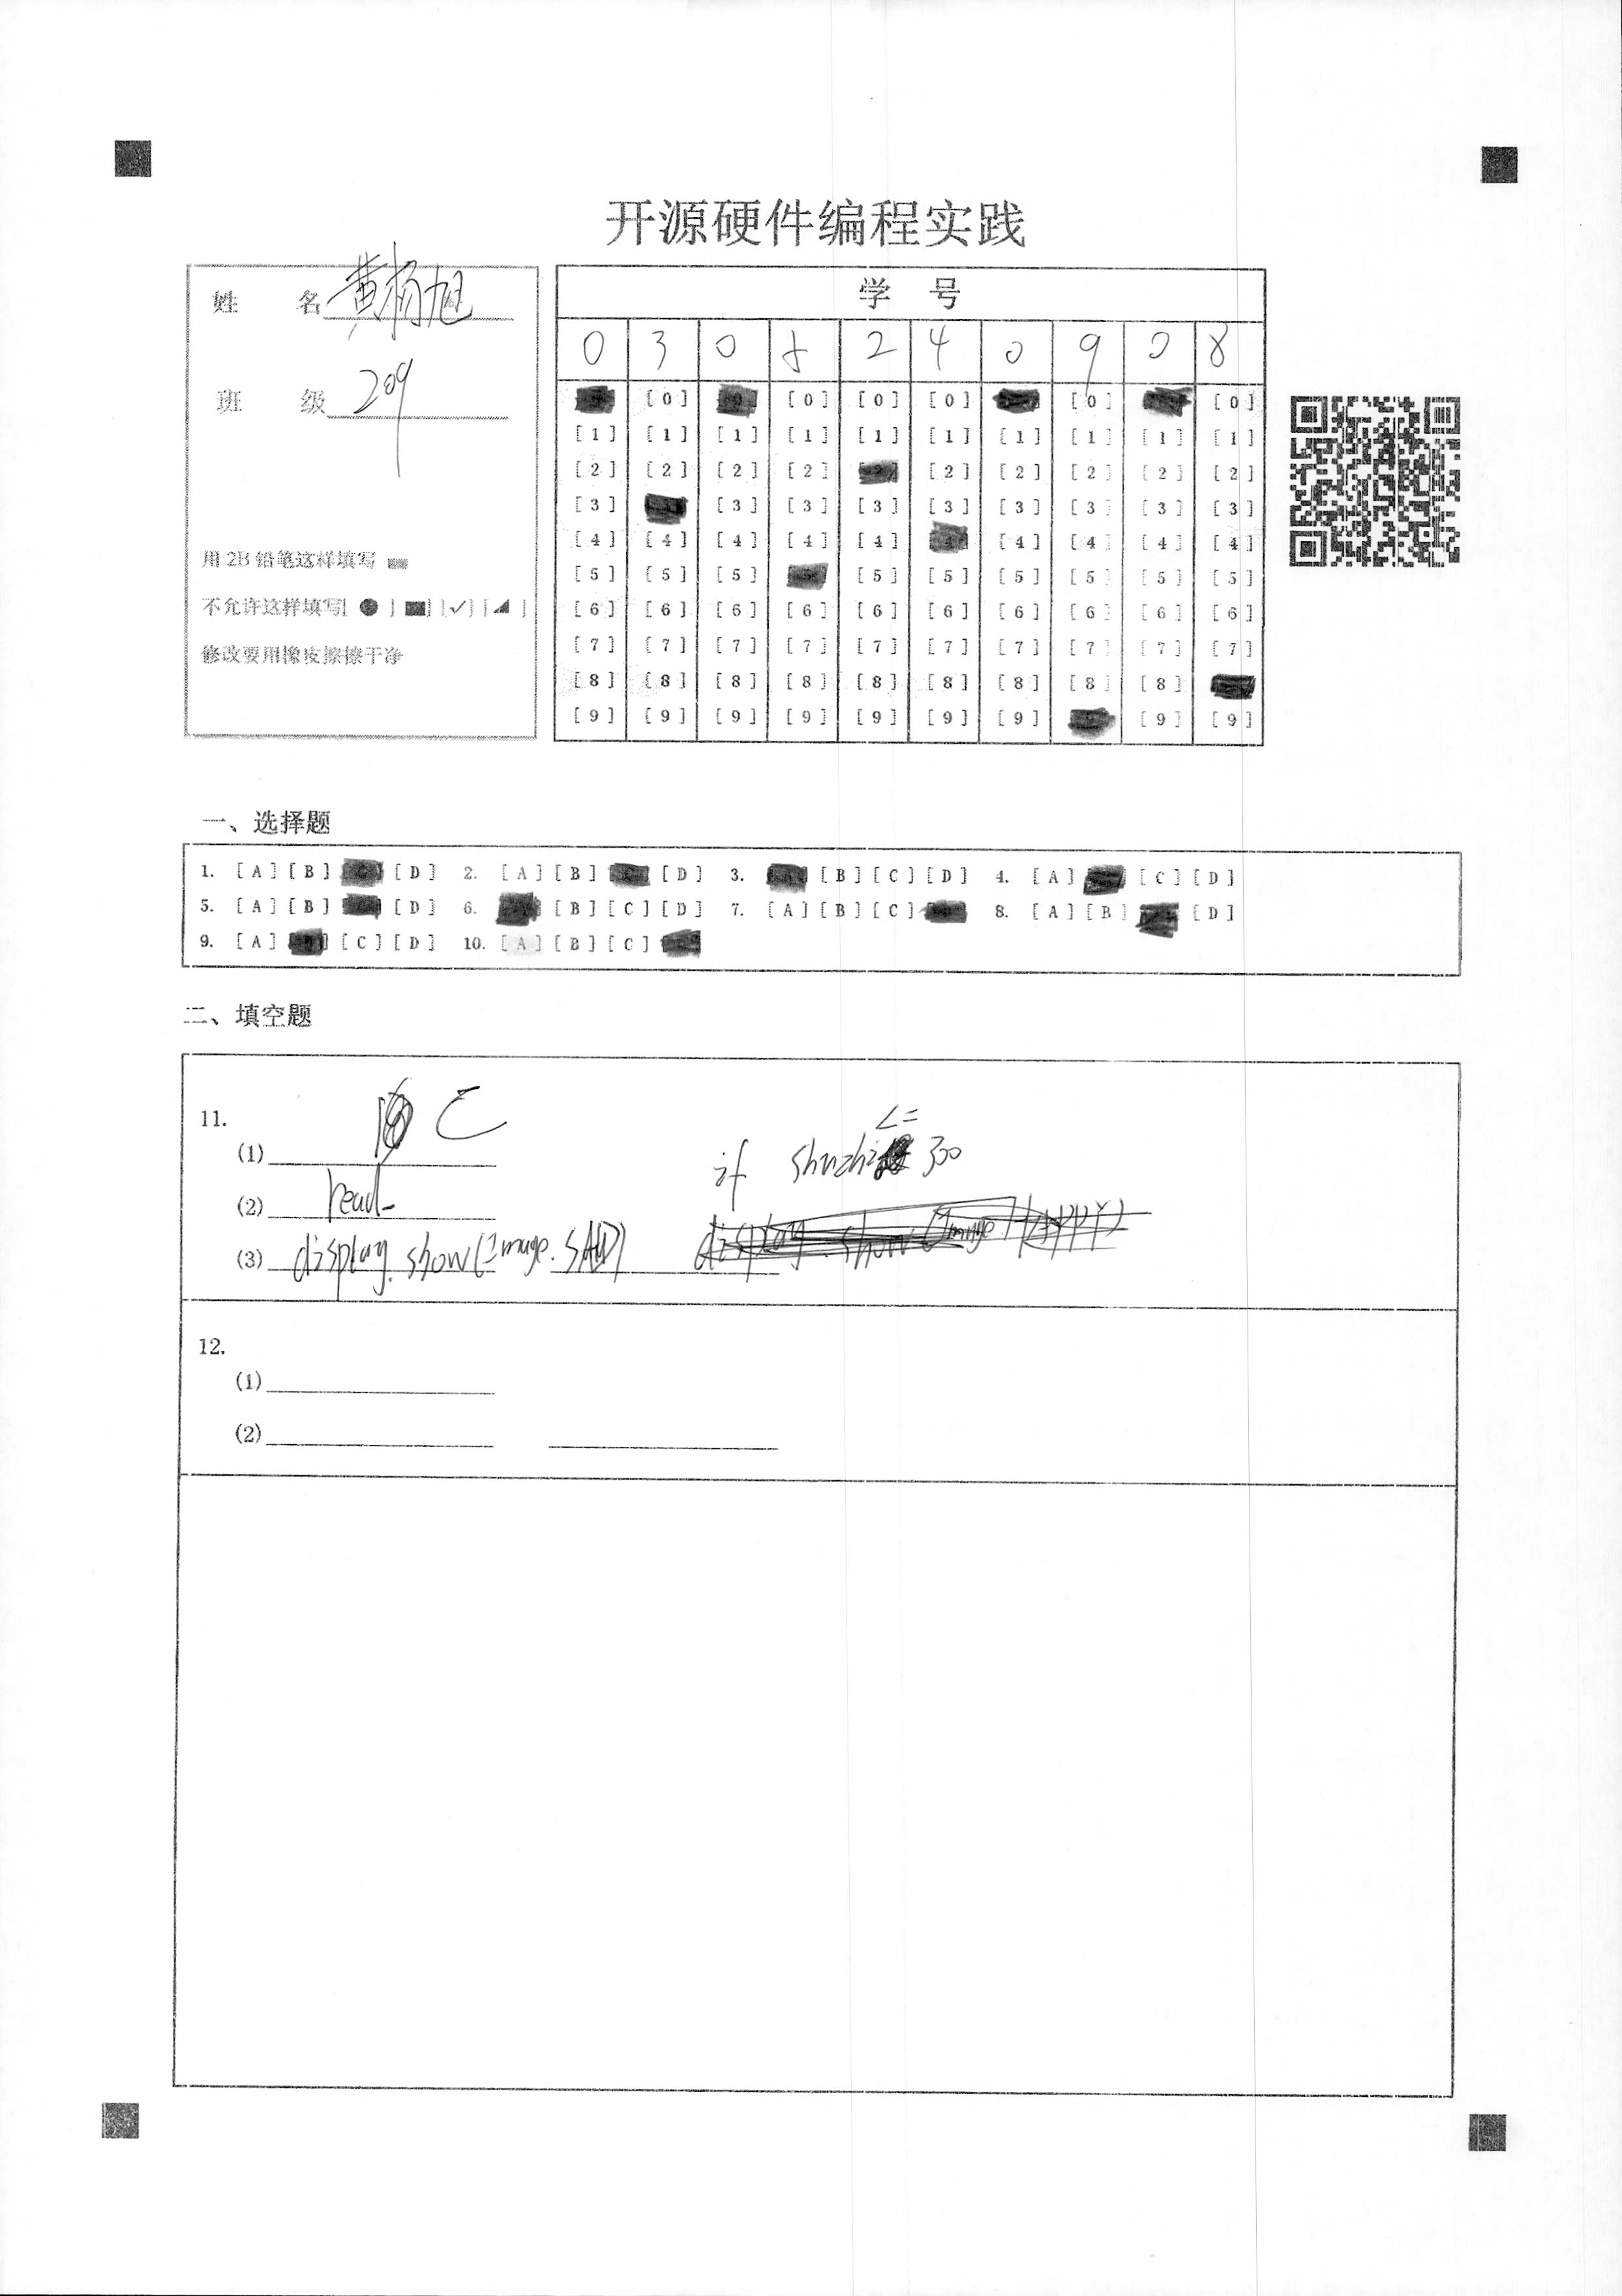 开源硬件编程实践
姓 名 黄杨旭
班 级 209
用 2B 铅笔这样填写
不允许这样填写[ ● ] [■] [✓] [◢ ]
修改要用橡皮擦擦干净
学 号
0 3 0 5 2 4 0 9 0 8
[0] [0] [0] [0] [0] [0]
[1] [1] [1] [1] [1] [1] [1] [1] [1] [1]
[2] [2] [2] [2] [2] [2] [2] [2] [2]
[3] [3] [3] [3] [3] [3] [3] [3] [3]
[4] [4] [4] [4] [4] [4] [4] [4] [4]
[5] [5] [5] [5] [5] [5] [5] [5] [5]
[6] [6] [6] [6] [6] [6] [6] [6] [6] [6]
[7] [7] [7] [7] [7] [7] [7] [7] [7] [7]
[8] [8] [8] [8] [8] [8] [8] [8] [8]
[9] [9] [9] [9] [9] [9] [9] [9] [9]
一、选择题
1. [A] [B] [D] 2. [A] [B] [D] 3. [B] [C] [D] 4. [A] [C] [D]
5. [A] [B] [D] 6. [B] [C] [D] 7. [A] [B] [C] 8. [A] [B] [D]
9. [A] [C] [D] 10. [A] [B] [C]
二、填空题
11.
(1) C
if shuzhi <= 300
(2) read_
(3) display.show(Image.SAD)
12.
(1)
(2)